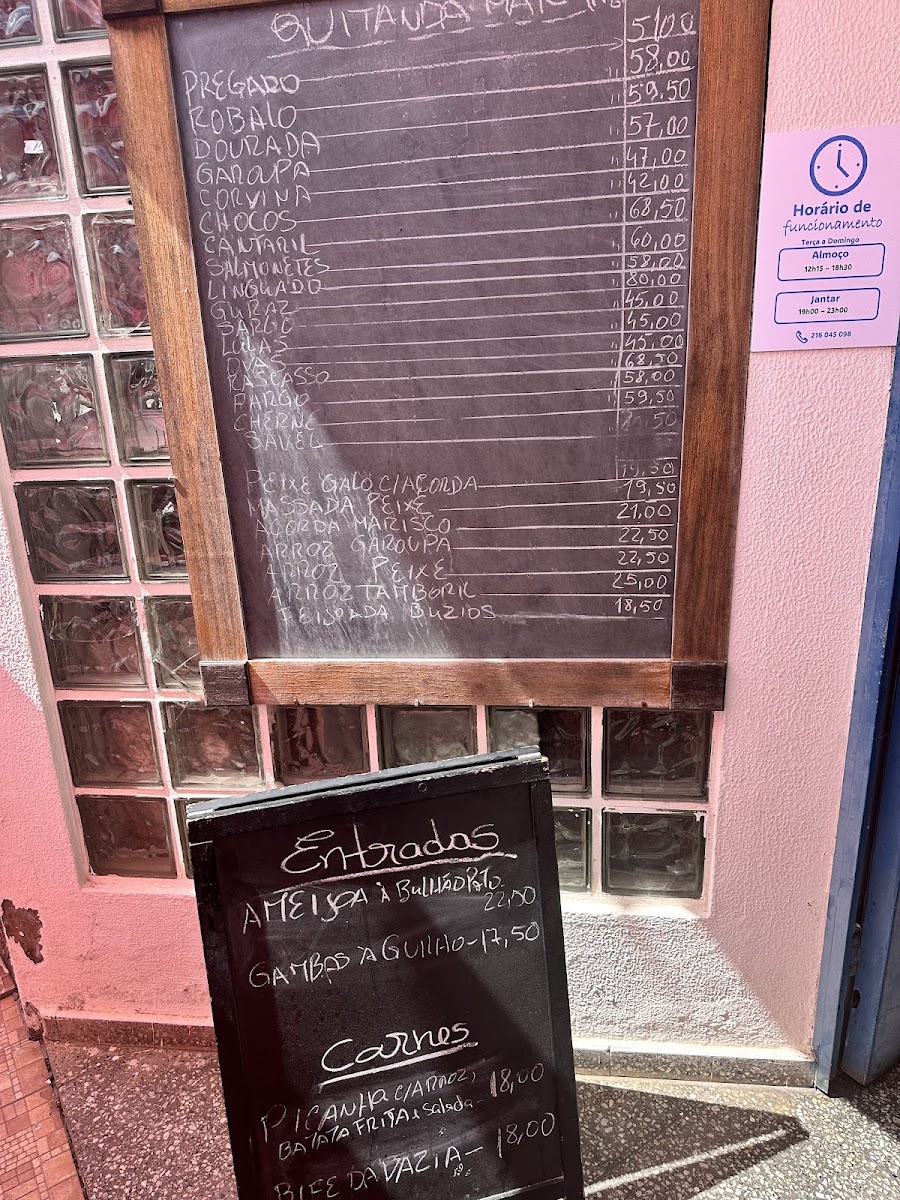 QUITANDA MAR
PREGADO 51,00
ROBALO " 58,00
DOURADA " 59.50
GAROUPA " 57,00
CORVINA " 47,00
CHOCOS " 42,00
CANTARIL " 68,50
SALMONETES " 60,00
LINGUADO " 58,00
GURAZ " 80,00
SARGO " 45,00
LULAS " 45,00
OVAS " 45,00
RASCASSO " 68,50
PARGO " 58,00
CHERNE " 59,50
SAVEL
PEIXE GALO C/AÇORDA 19,50
MASSADA PEIXE 19,50
AÇORDA MARISCO 21,00
ARROZ GAROUPA 22,50
ARROZ PEIXE 22,50
ARROZ TAMBORIL 25,00
FEIJOADA BUZIOS 18,50
Horário de
funcionamento
Terça a Domingo
Almoço
12h15 – 18h30
Jantar
19h00 – 23h00
216 045 098
Entradas
AMEIJOA À BULHÃO PATO
22,50
GAMBAS À GUILHO - 17,50
Carnes
PICANHA C/ARROZ,
BATATA FRITA e Salada - 18,00
BIFE DA VAZIA - 18,00